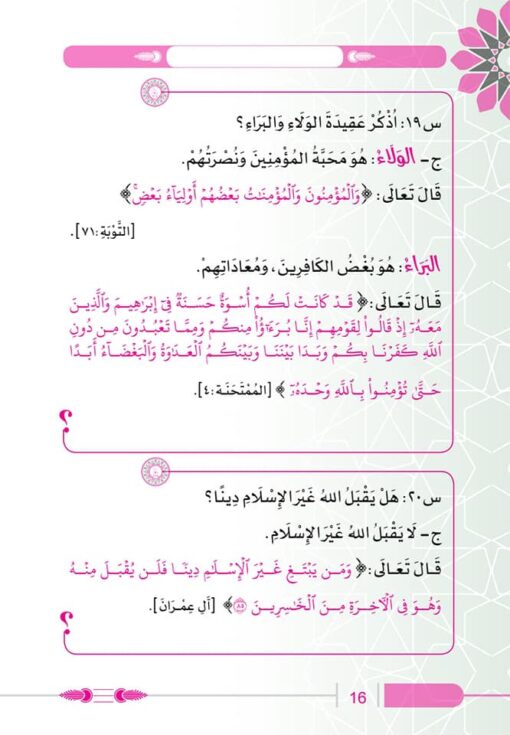 س١٩: اُذْكُرْ عَقِيدَةَ الوَلَاءِ وَالبَرَاءِ؟
ج- الوَلَاءُ: هُوَ مَحَبَّةُ المُؤْمِنِينَ وَنُصْرَتُهُمْ.
قَالَ تَعَالَى: ﴿وَٱلْمُؤْمِنُونَ وَٱلْمُؤْمِنَٰتُ بَعْضُهُمْ أَوْلِيَآءُ بَعْضٍۚ﴾
[التَّوْبَةِ:٧١].
البَرَاءُ: هُوَ بُغْضُ الكَافِرِينَ، وَمُعَادَاتِهِمْ.
قَالَ تَعَالَى: ﴿قَدْ كَانَتْ لَكُمْ أُسْوَةٌ حَسَنَةٌ فِىٓ إِبْرَٰهِيمَ وَٱلَّذِينَ
مَعَهُۥٓ إِذْ قَالُوا۟ لِقَوْمِهِمْ إِنَّا بُرَءَٰٓؤُا۟ مِنكُمْ وَمِمَّا تَعْبُدُونَ مِن دُونِ
ٱللَّهِ كَفَرْنَا بِكُمْ وَبَدَا بَيْنَنَا وَبَيْنَكُمُ ٱلْعَدَٰوَةُ وَٱلْبَغْضَآءُ أَبَدًا
حَتَّىٰ تُؤْمِنُوا۟ بِٱللَّهِ وَحْدَهُۥٓ﴾ [المُمْتَحَنَة:٤].
س٢٠: هَلْ يَقْبَلُ اللهُ غَيْرَ الإِسْلَامِ دِينًا؟
ج- لَا يَقْبَلُ اللهُ غَيْرَ الإِسْلَامِ.
قَالَ تَعَالَى: ﴿وَمَن يَبْتَغِ غَيْرَ ٱلْإِسْلَٰمِ دِينًا فَلَن يُقْبَلَ مِنْهُ
وَهُوَ فِى ٱلْءَاخِرَةِ مِنَ ٱلْخَٰسِرِينَ ٨٥﴾ [آلِ عِمْرَانَ].
16